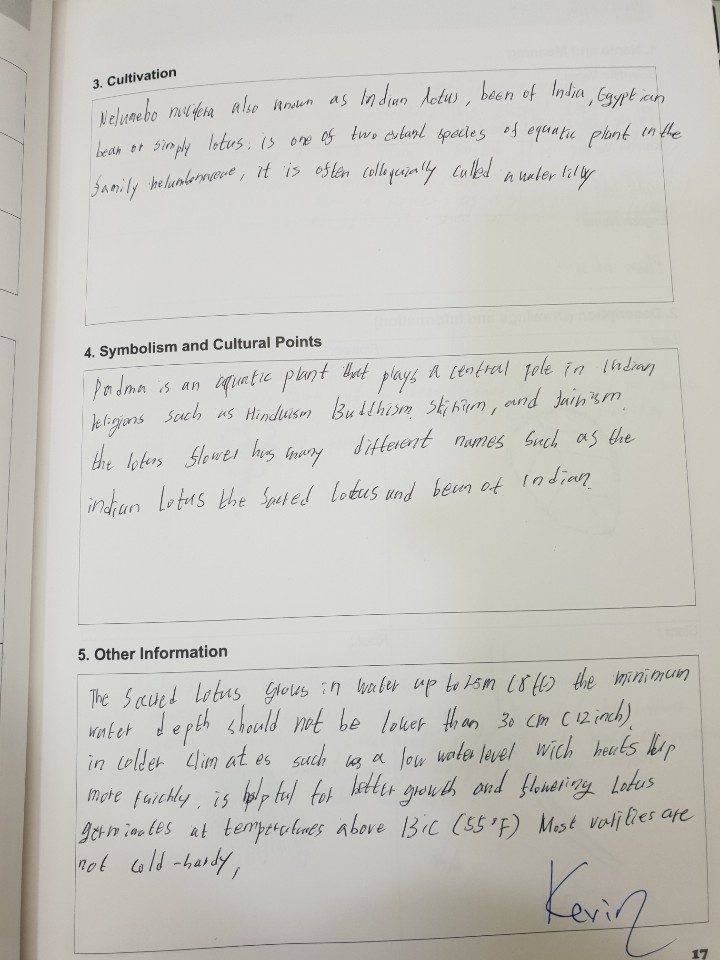 3. Cultivation
Nelumebo nucifera also known as Indian Lotus, been of India, Egyptian
bean or simply lotus, is one of two extant species of equatic plant in the
family, it is often called a water lilly
4. Symbolism and Cultural Points
Padma is an aquatic plant that plays a central role in Indian
religions such as Hinduism Buddhism, and Jainism
the lotus flower has many different names such as the
indian Lotus the Sacred Lotus and been of Indian.
5. Other Information
The Sacred Lotus grows in water up to 25m (8ft) the minimum
water depth should not be lower than 30 cm (12 inch)
in colder climates such as a low water level wich heats up
more, is helpful for better growth and flowering Lotus
germinates at temperatures above 13°C (55°F) Most are
not cold-hardy,
Kevin
17